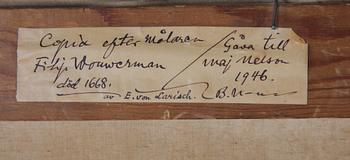 Copia efter målaren
Filip Wouwerman
död 1668.
av E. von Larisch.
Gåva till
Maj Nelson
1946.